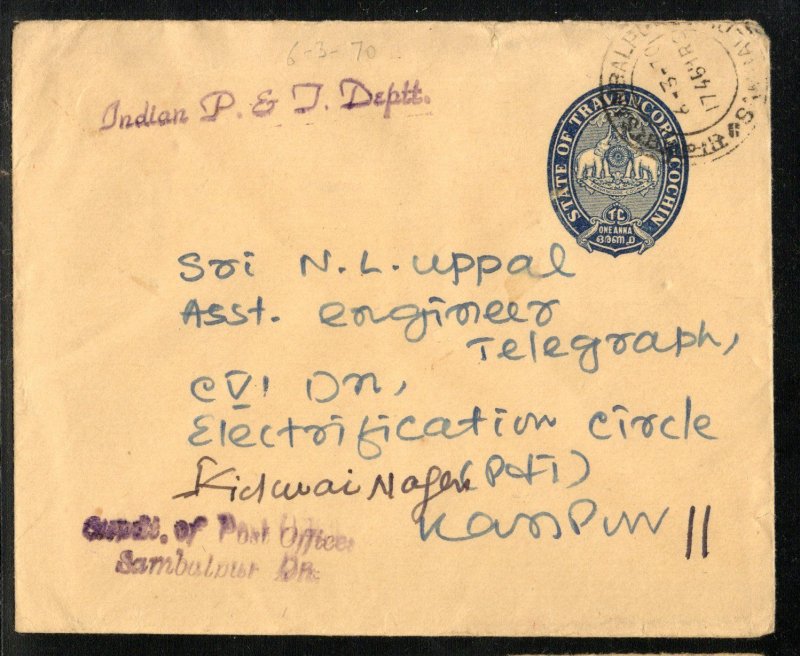 6-3-70
Indian P. & T. Deptt.
6-3-70
STATE OF TRAVANCORE-COCHIN
TC
ONE ANNA
Sri N.L. Uppal
Asst. engineer
Telegraph,
CVI Dn,
Electrification circle
Kidwai Nagar (P&T)
Kanpur 11
Supdt. of Post Offices
Sambalpur Dn.